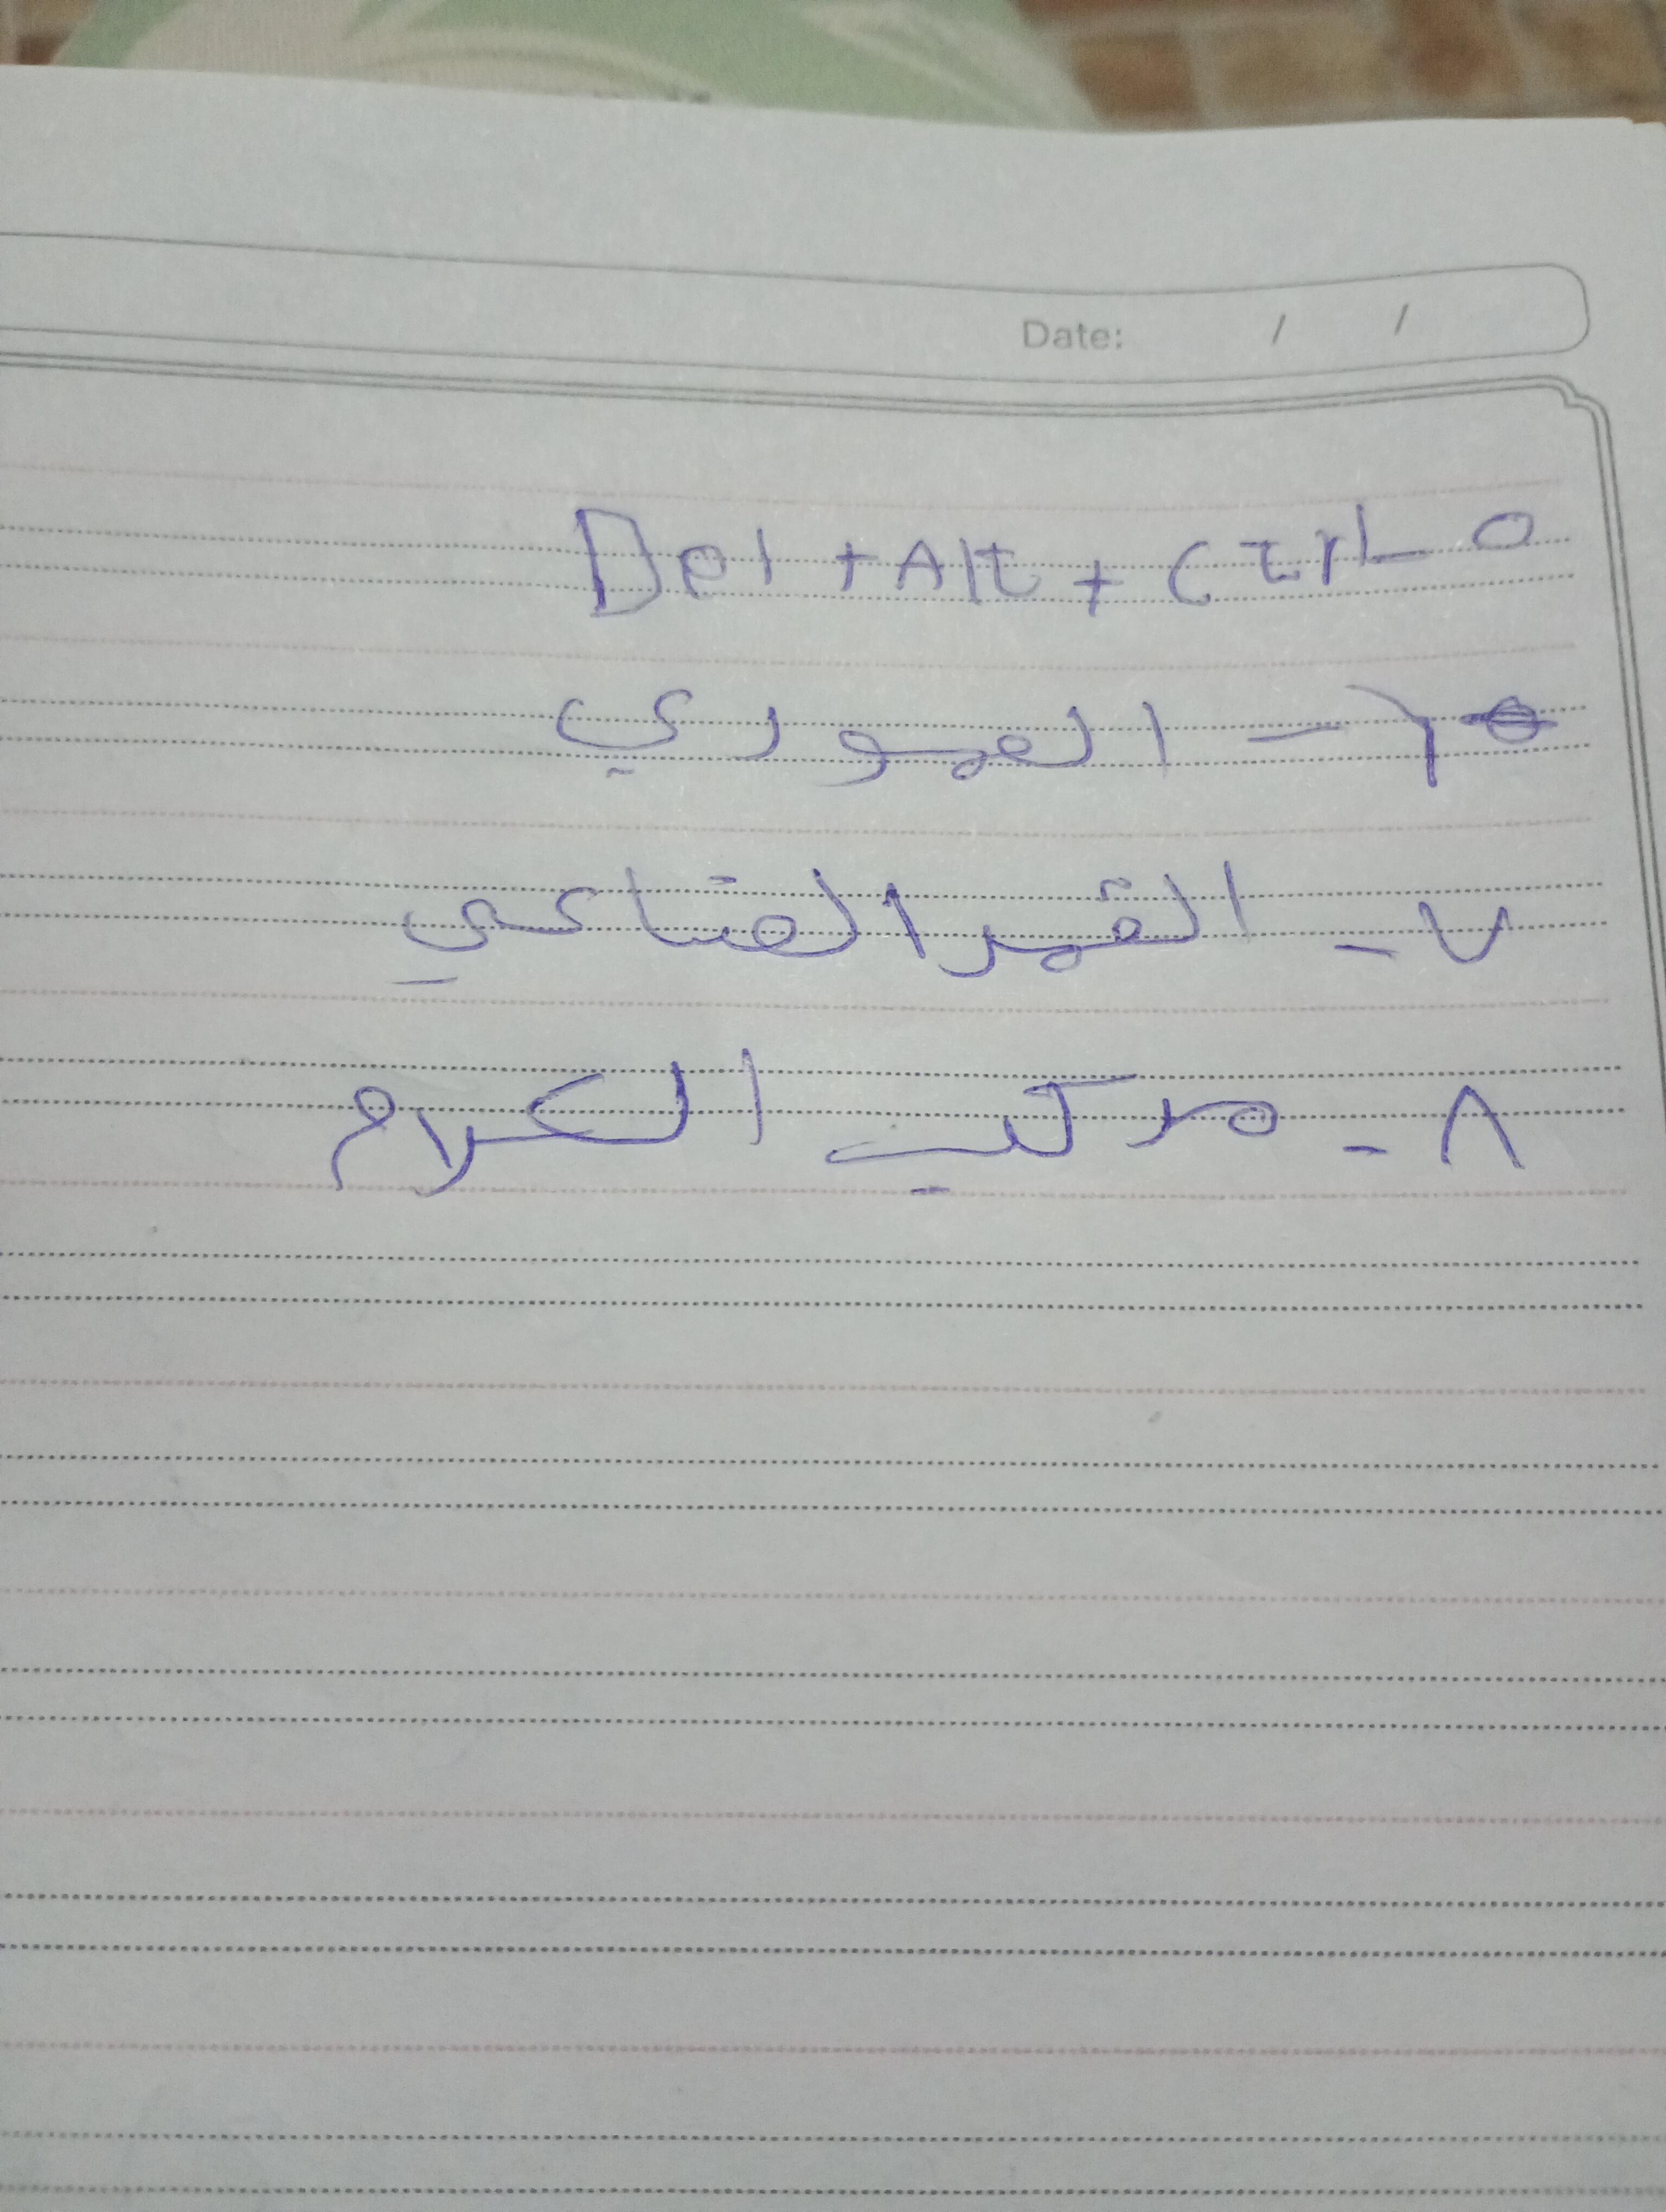 Date: / /
٥ - Del + Alt + Ctrl
٦ - الصوري
٧ - القمر الصناعي
٨ - مركب الكلام